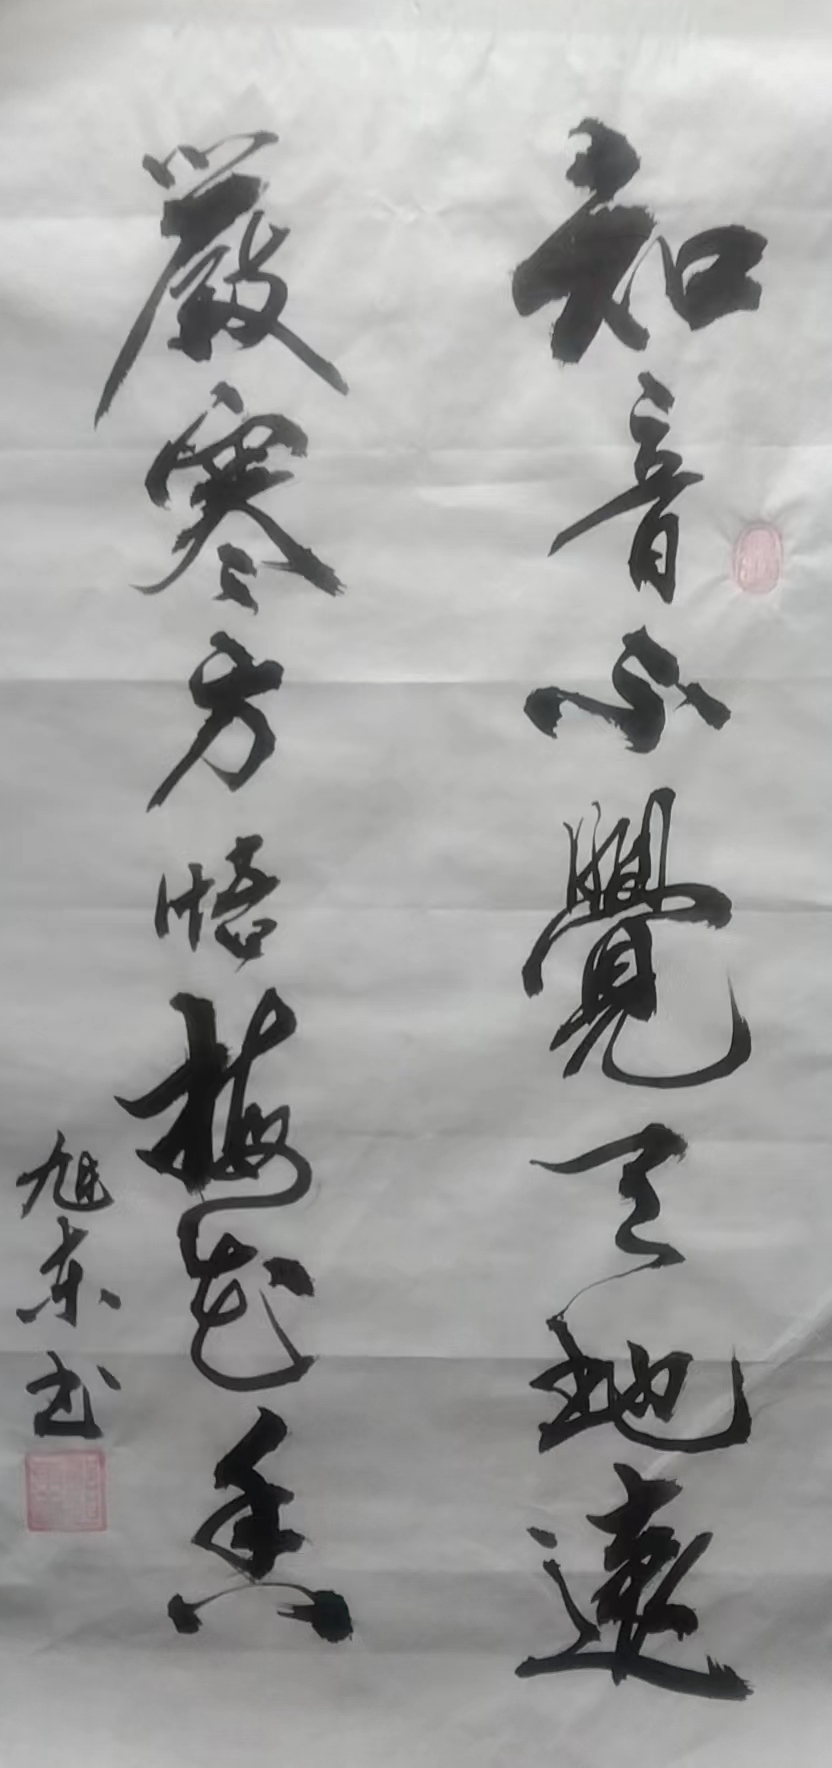 知音不覺天地遠
嚴寒方悟梅花香
旭東书